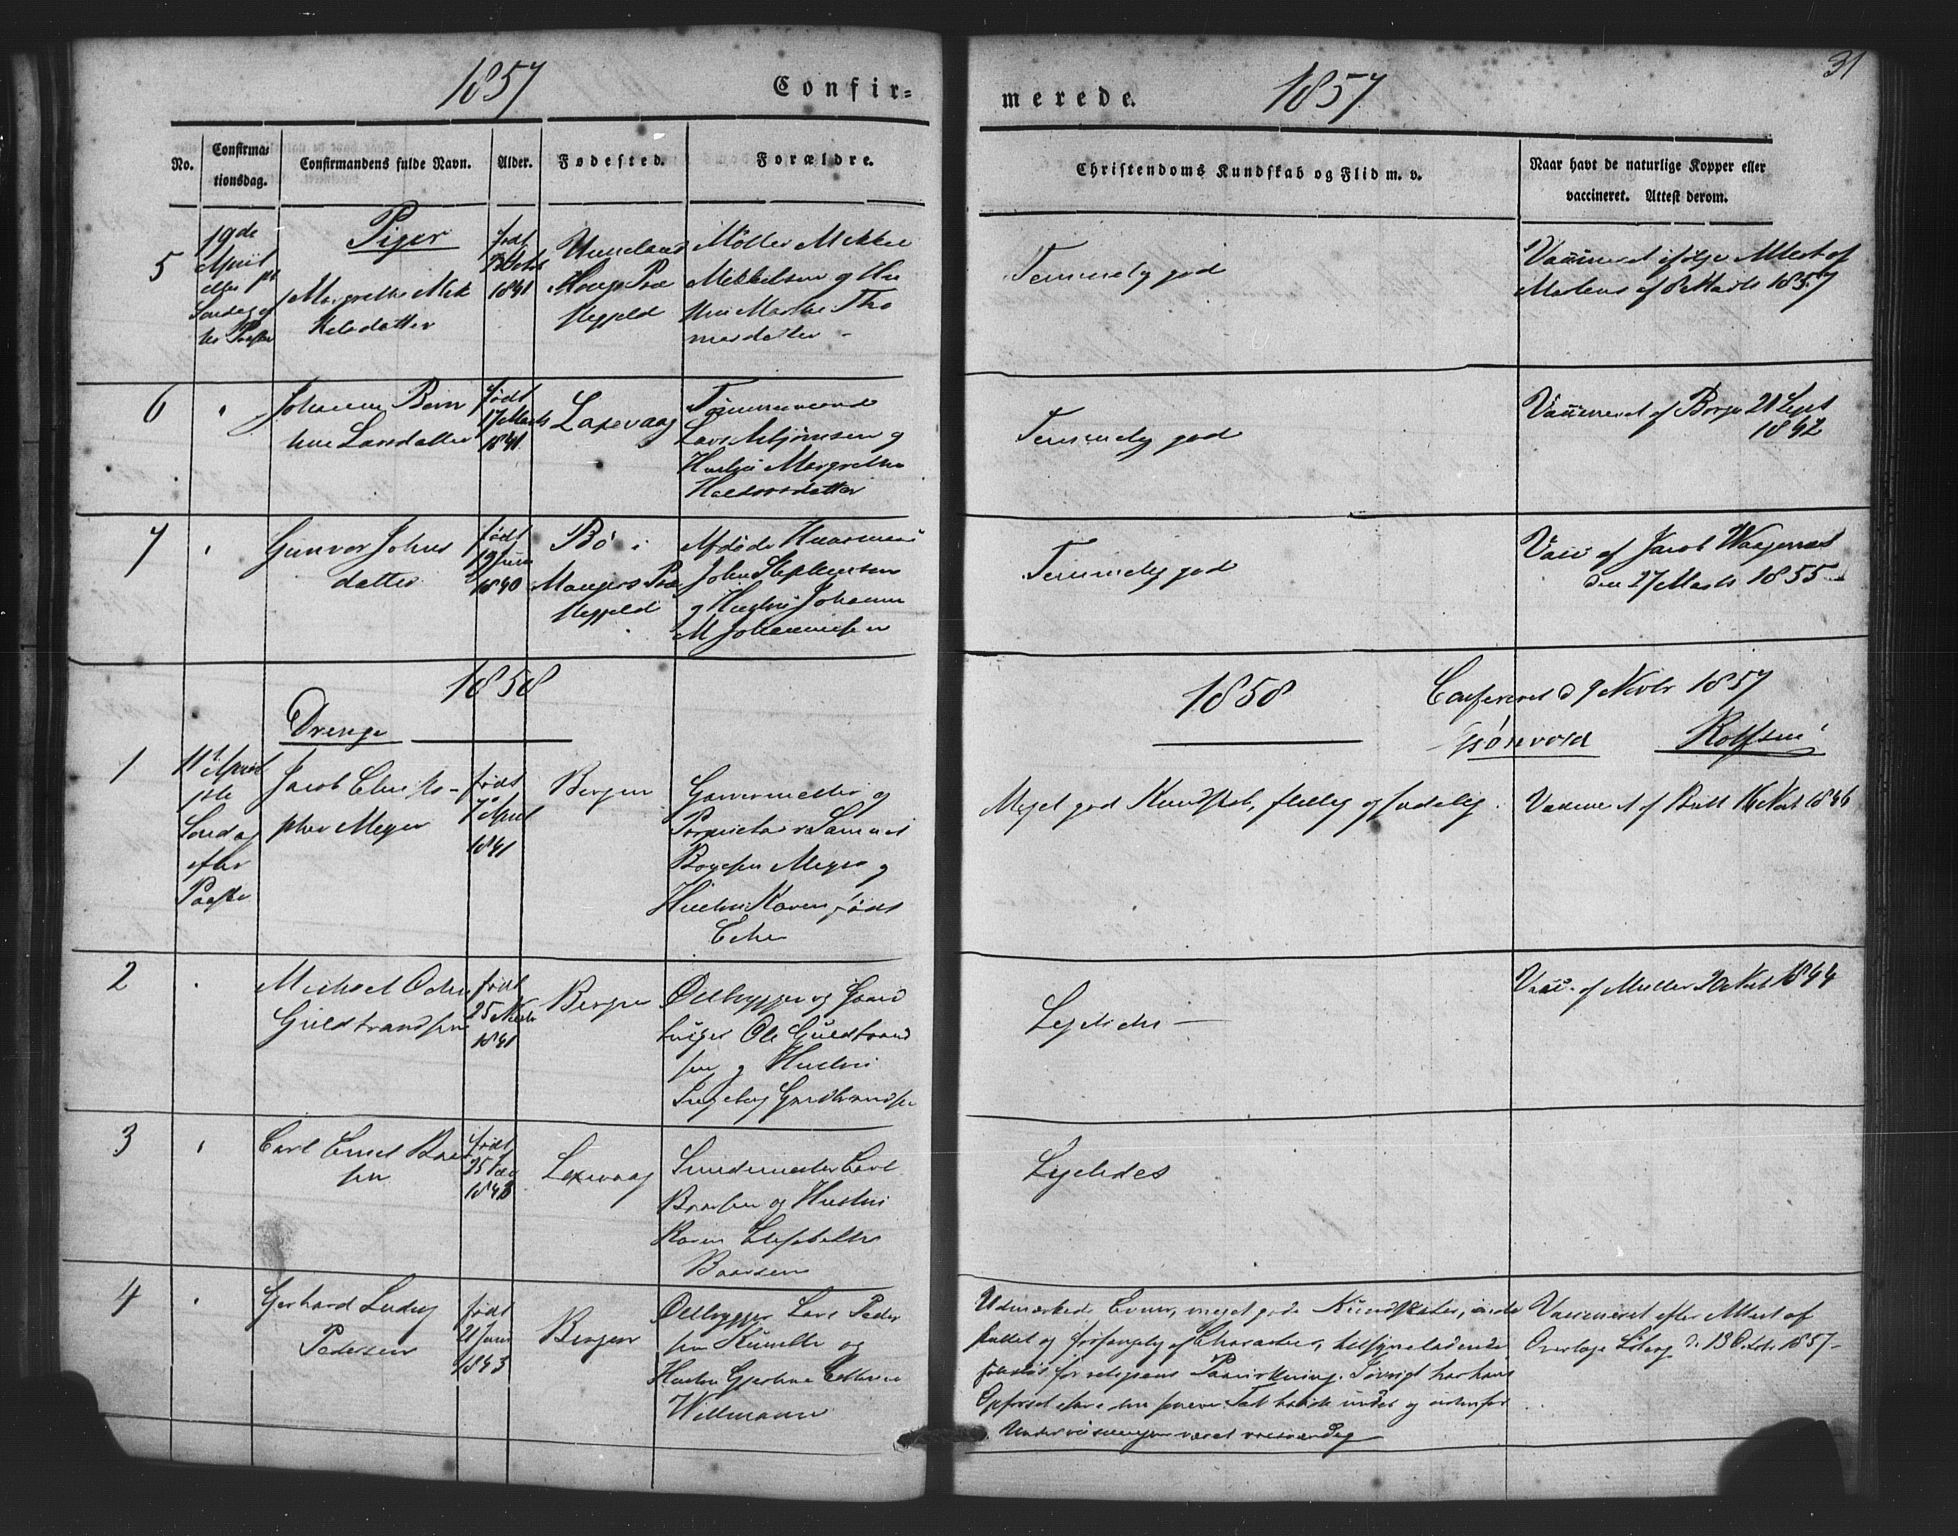 31
1857
Confir=
merede.
1857
No.
Confirma-
tionsdag.
Confirmandens fulde Navn.
Alder.
Fødested.
Forældre.
Christendoms Kundskab og Flid m. v.
Naar havt de naturlige Kopper eller
vaccineret. Attest derom.
Piger
5
19de
April
Søndag
Margrethe Mik
kelsdatter
født
1841
Møller Mikkel
Mikkelsen og Hu
stru Marthe Tho
masdatter
Temmelig god
Vaccineret ifølge Attest af
1857
6
Johanne Bern
hine Larsdatter
født
17 Marts
1841
Laxevaag
Tømmermand
Lars og
Hustru Margrethe
Halvorsdatter
Temmelig god
Vaccineret af Borge 21 Sept
1842
7
Gunvor Johns
datter
født
19 Juni
1840
Bø i
Mangers Præ
stegjeld
Afdøde Huusmand
John Stephensen
og Hustru Johanne
M Johannesen
Temmelig god
Vacc af Jacob Waagenæs
den 27 Marts 1855
1858
1858
Confereret d 9 Novbr 1857
Grønvold
Rolfsen
Drenge
1
11 April
1ste
Søndag
efter
Paaske
Jacob Christo-
pher Meyer
født
7 April
1841
Bergen
Garvermester og
Proprietair Samuel
Meyer og
Hustru Karen født
Meget god Kundskab, flittig og sædelig.
Vaccineret af Butt 16 1846
2
Michael
Guldbrandsen
født
25
1841
Bergen
Ølbrygger og Gaard
bruger Ole Guldbrand
sen og Hustru
Ingeborg Guldbrandsen
Ligeledes
Vacc. af Müller 20 1844
3
Carl Ernst Baar
sen
født
25
1843
Laxevaag
Smedemester Carl
Baarsen og Hustru
Karen Elisabeth
Baarsen
Ligeledes
4
Gerhard Ludvig
Pedersen
født
21 Juni
1843
Bergen
Ølbrygger Lars Peder
sen og
Hustru Gjertine Cathrine
Willmann
Udmærkede Evner, meget gode Kundskaber,
og af Charakter,
for religieus Paavirkning. Iøvrigt har hans
Opførsel i den senere Tid baade under og udenfor
Underviisningen været roesværdig
Vaccineret efter Attest af
Overlæge d. 13 Octbr 1857